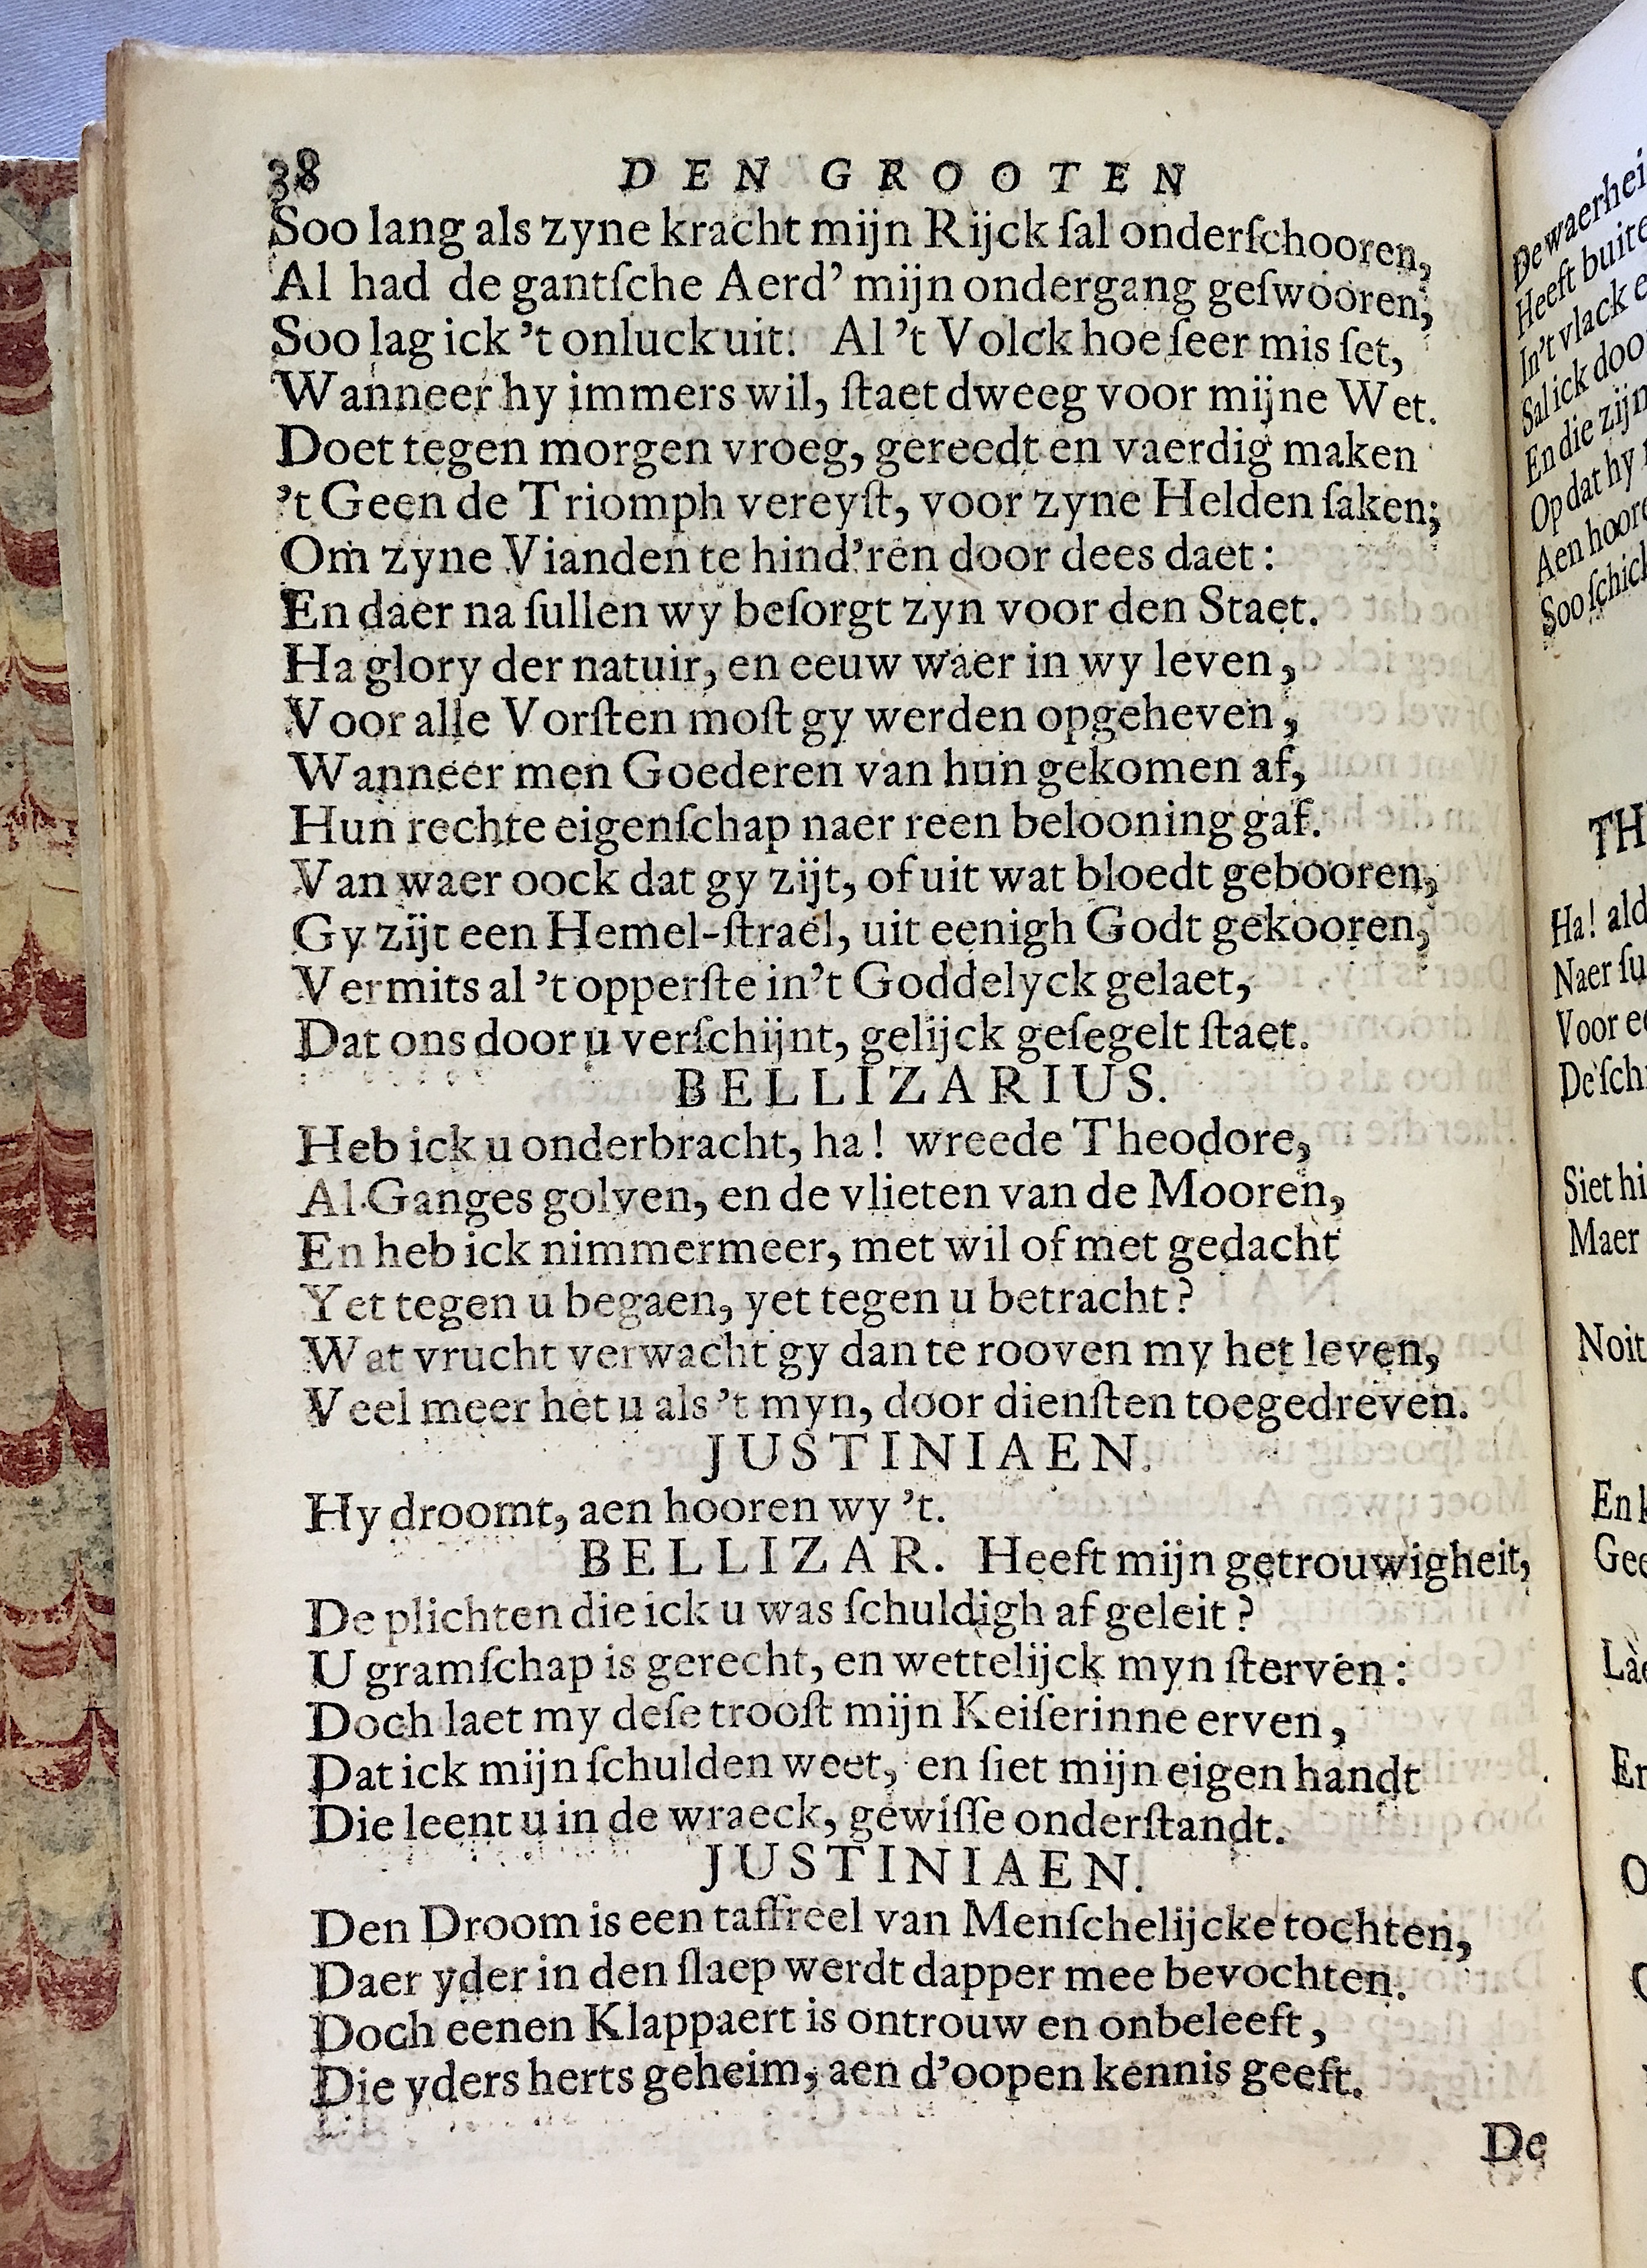 38 DEN GROOTEN
Soo lang als zyne kracht mijn Rijck ſal onderſchooren,
Al had de gantſche Aerd' mijn ondergang geſwooren,
Soo lag ick 't onluck uit: Al 't Volck hoe ſeer mis ſet,
Wanneer hy immers wil, ſtaet dweeg voor mijne Wet.
Doet tegen morgen vroeg, gereedt en vaerdig maken
't Geen de Triomph vereyſt, voor zyne Helden ſaken;
Om zyne Vianden te hind'ren door dees daet:
En daer na ſullen wy beſorgt zyn voor den Staet.
Ha glory der natuir, en eeuw waer in wy leven,
Voor alle Vorſten moſt gy werden opgeheven,
Wanneer men Goederen van hun gekomen af,
Hun rechte eigenſchap naer reen belooning gaf.
Van waer oock dat gy zijt, of uit wat bloedt gebooren,
Gy zijt een Hemel-ſtrael, uit eenigh Godt gekooren,
Vermits al 't opperſte in 't Goddelyck gelaet,
Dat ons door u verſchijnt, gelijck geſegelt ſtaet.
BELLIZARIUS.
Heb ick u onderbracht, ha! wreede Theodore,
Al Ganges golven, en de vlieten van de Mooren,
En heb ick nimmermeer, met wil of met gedacht
Yet tegen u begaen, yet tegen u betracht?
Wat vrucht verwacht gy dan te rooven my het leven,
Veel meer het u als 't myn, door dienſten toegedreven.
JUSTINIAEN.
Hy droomt, aen hooren wy 't.
BELLIZAR. Heeft mijn getrouwigheit,
De plichten die ick u was ſchuldigh af geleit?
U gramſchap is gerecht, en wettelijck myn ſterven:
Doch laet my deſe trooſt mijn Keiſerinne erven,
Dat ick mijn ſchulden weet, en ſiet mijn eigen handt
Die leent u in de wraeck, gewiſſe onderſtandt.
JUSTINIAEN.
Den Droom is een taffreel van Menſchelijcke tochten,
Daer yder in den ſlaep werdt dapper mee bevochten.
Doch eenen Klappaert is ontrouw en onbeleeft,
Die yders herts geheim, aen d'oopen kennis geeft.
De
De waerhei
Heeft buite
In't vlack e
Sal ick doo
En die zijn
Op dat hy
Aen hoor
Soo ſchick
TH
Ha! ald
Naer ſu
Voor e
De ſch
Siet hi
Maer
Noit
En
Gee